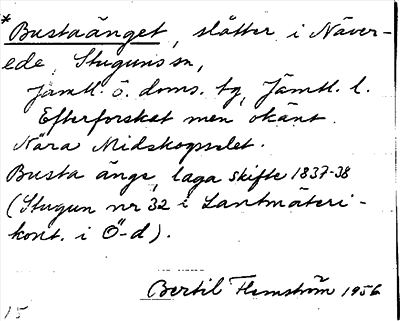 *Bustaänget, slåtter i Näver-
ede, Stuguns sn,
Jämtl. ö. doms. tg, Jämtl. l.
Efterforskat men okänt.
Nära Midskogsselet.
Busta änge, laga skifte 1837-38
(Stugun nr 32 i Lantmäteri-
kont. i Ö-d).
Bertil Flemström 1956
15